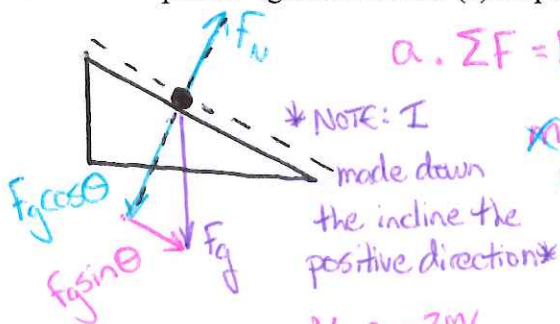 F_N
a. ΣF =
* NOTE: I
made down
the incline the
positive direction*
Fgcosθ
Fgsinθ
Fg